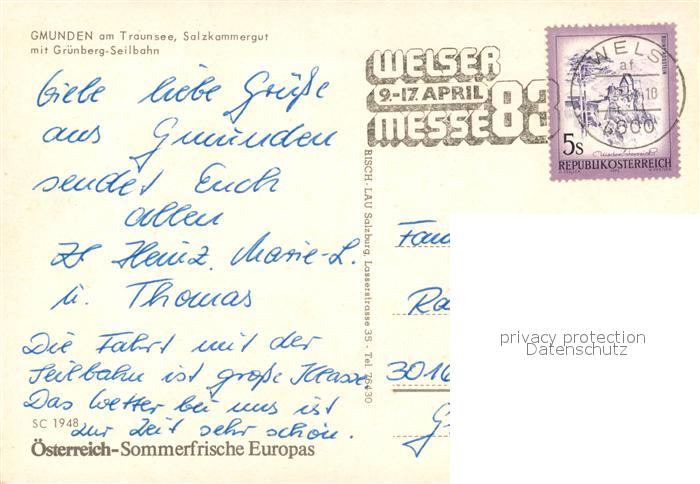 GMUNDEN am Traunsee, Salzkammergut
mit Grünberg-Seilbahn
Viele liebe Grüße
aus Gmunden
sendet Euch
allen
Heinz, Marie-L.
u. Thomas
Die Fahrt mit der
Seilbahn ist große Klasse
Das Wetter bei uns ist
zur Zeit sehr schön.
SC 1948
Österreich-Sommerfrische Europas
RISCH-LAU Salzburg, Lasserstrasse 35 - Tel. 76430
WELSER
9.-17. APRIL
MESSE 83
WELS
af
10
4600
5s
REPUBLIK ÖSTERREICH
Fam
Ra
3016
privacy protection
Datenschutz